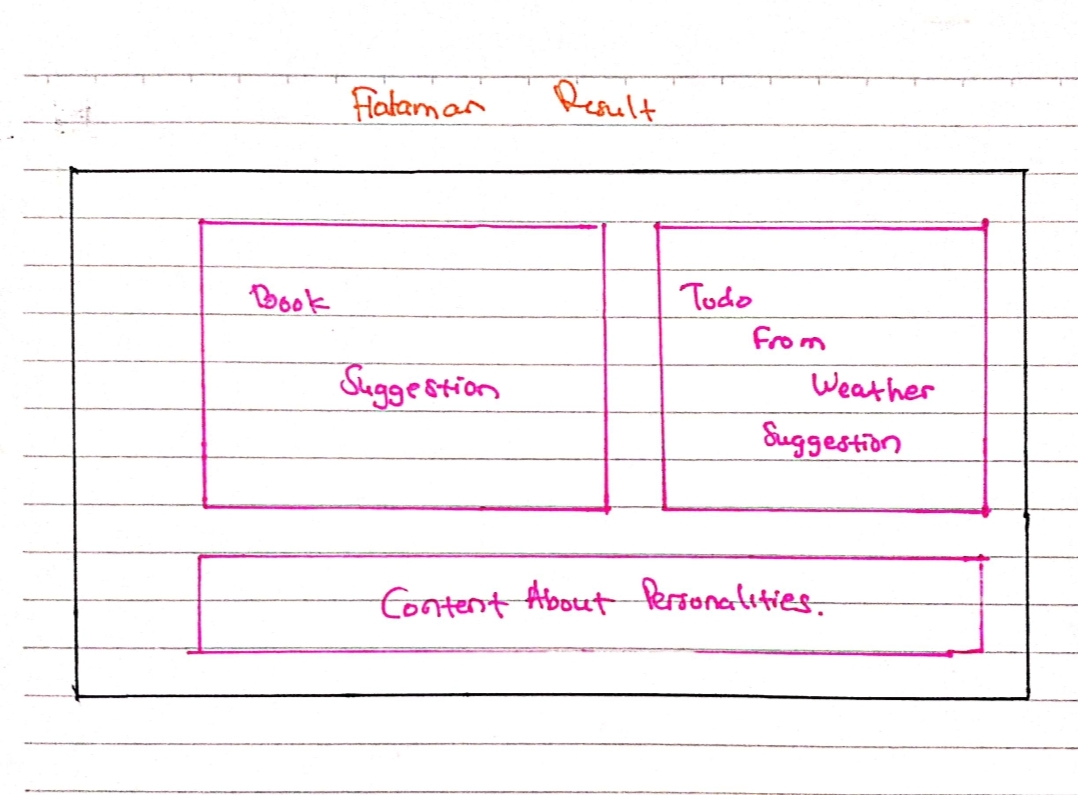 Halaman Result
Book
Suggestion
Todo
From
Weather
Suggestion
Content About Personalities.